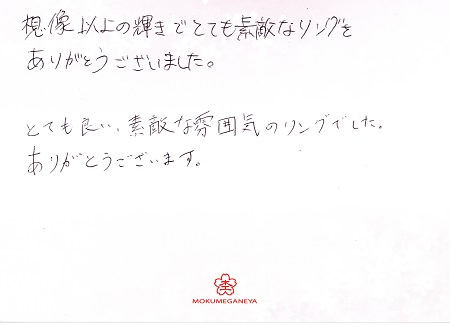 想像以上の輝きでとても素敵なリングを
ありがとうございました。
とても良い、素敵な雰囲気のリングでした。
ありがとうございます。
MOKUMEGANEYA